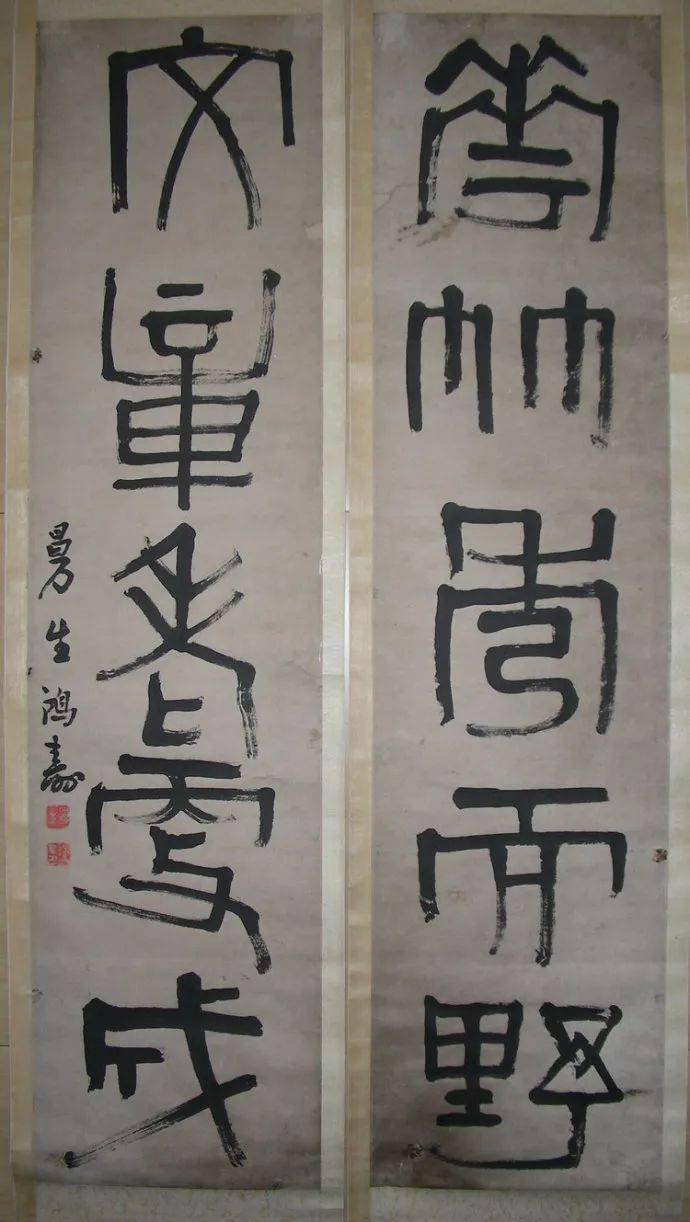 華竹秀而野
文章老更成
曼生鴻壽